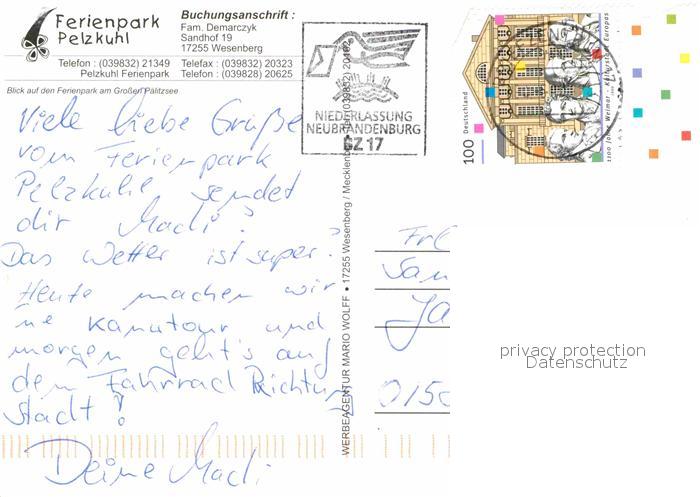 Ferienpark
Pelzkuhl
Buchungsanschrift :
Fam. Demarczyk
Sandhof 19
17255 Wesenberg
Telefon : (039832) 21349
Telefax : (039832) 20323
Pelzkuhl Ferienpark
Telefon : (039828) 20625
Blick auf den Ferienpark am Großen Pälitzsee
NIEDERLASSUNG
NEUBRANDENBURG
BZ 17
Deutschland
100
1100 Jahre Weimar - Kulturstadt Europas
Viele liebe Grüße
vom Ferienpark
Pelzkuhl sendet
dir Madi!
Das Wetter ist super!
Heute machen wir
ne Kanutour und
morgen geht's auf
dem Fahrrad Richtung
Stadt!
Deine Madi
WERBEAGENTUR MARIO WOLFF • 17255 Wesenberg / Mecklenburg (039832) 20182
San
Ja
0150
privacy protection
Datenschutz